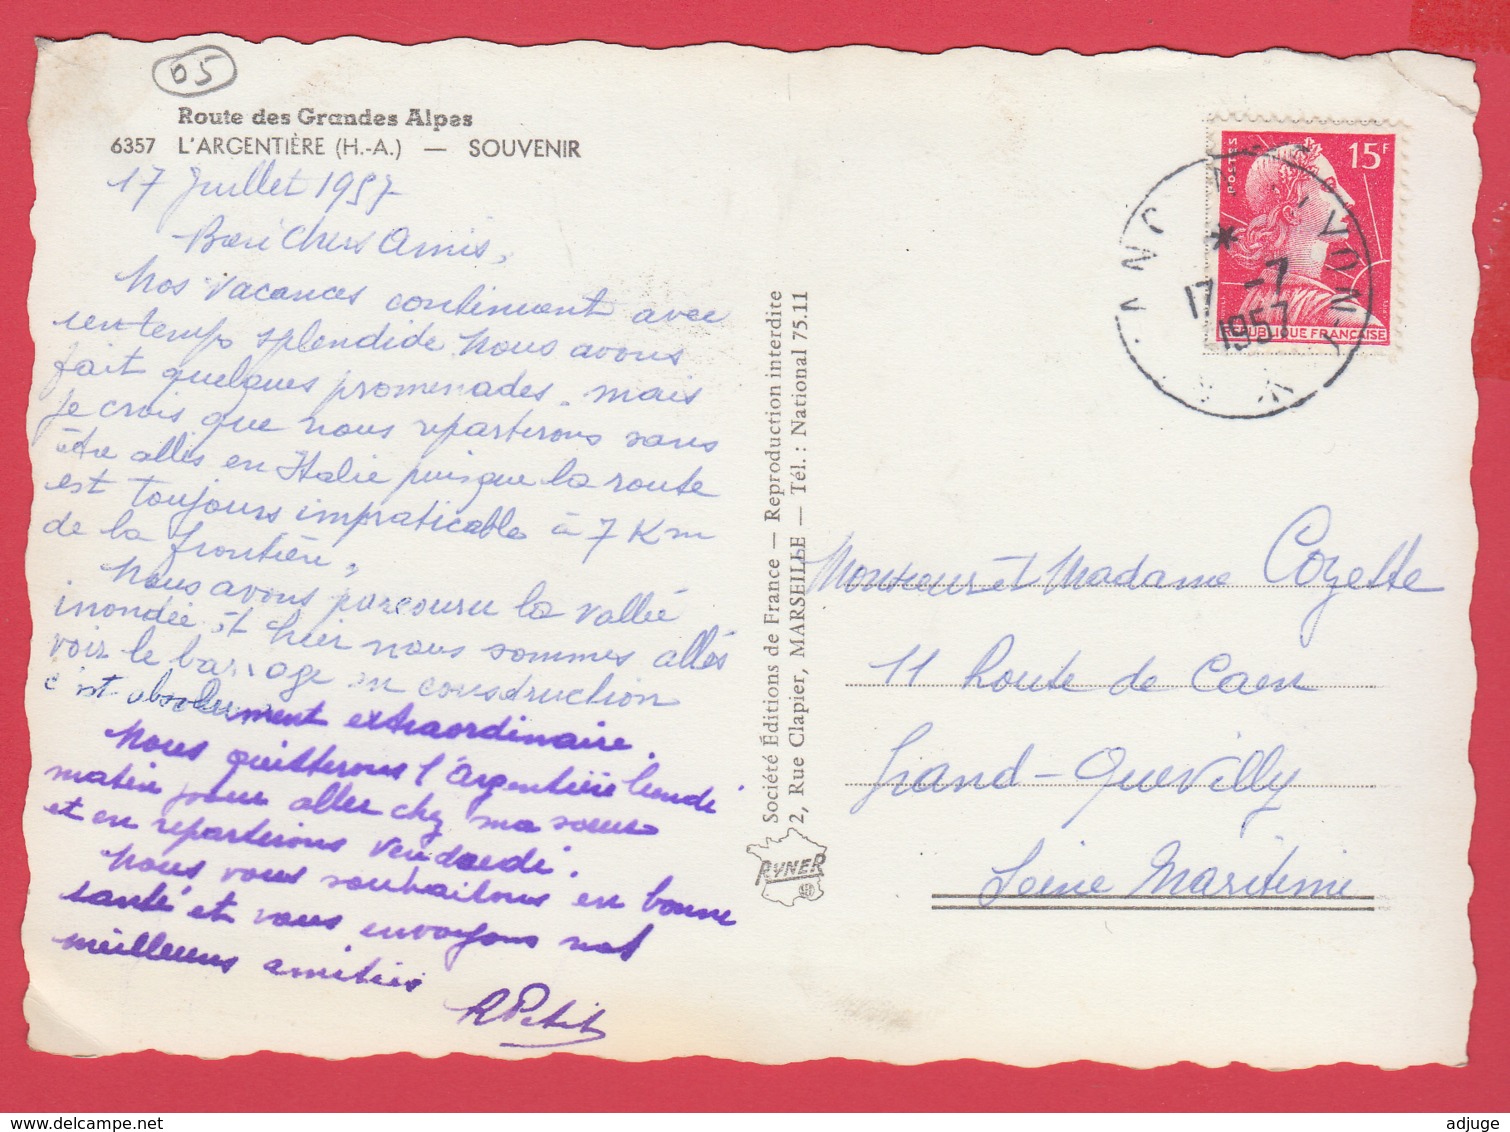 05
Route des Grandes Alpes
6357 L'ARGENTIÈRE (H.-A.) — SOUVENIR
17 Juillet 1957
Bien Chers Amis,
Nos vacances continuent avec
un temps splendide nous avons
fait quelques promenades. mais
je crois que nous repartirons sans
être allés en Italie puisque la route
est toujours impraticable à 7 Km
de la frontière,
Nous avons parcouru la vallée
inondée et hier nous sommes allés
voir le barrage en construction
c'est absolument extraordinaire.
Nous quitterons l'Argentière lundi
matin pour aller chez ma soeur
et en repartirons Vendredi.
Nous vous souhaitons en bonne
santé et vous envoyons nos
meilleures amitiés
R Petit
Société Éditions de France — Reproduction interdite
2, Rue Clapier, MARSEILLE — Tél. : National 75.11
RYNER
POSTES
15F
RÉPUBLIQUE FRANÇAISE
17 -7
1957
Monsieur et Madame Cozette
11 Route de Caen
Grand-Quevilly
Seine Maritime
adjuge - delcampe.net